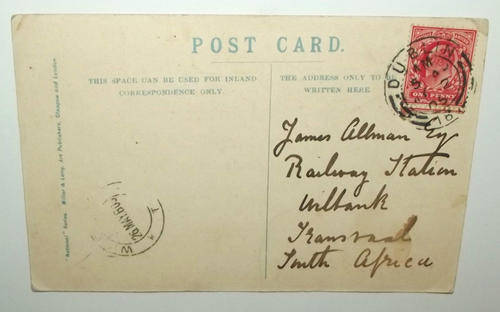 POST CARD.
THIS SPACE CAN BE USED FOR INLAND
CORRESPONDENCE ONLY.
THE ADDRESS ONLY TO
WRITTEN HERE
DUBLIN
ONE PENNY
James Allman Esq
Railway Station
Wilbank
Transvaal
South Africa
26 MAY 09
"National" Series Millar & Lang, Art Publishers, Glasgow and London.